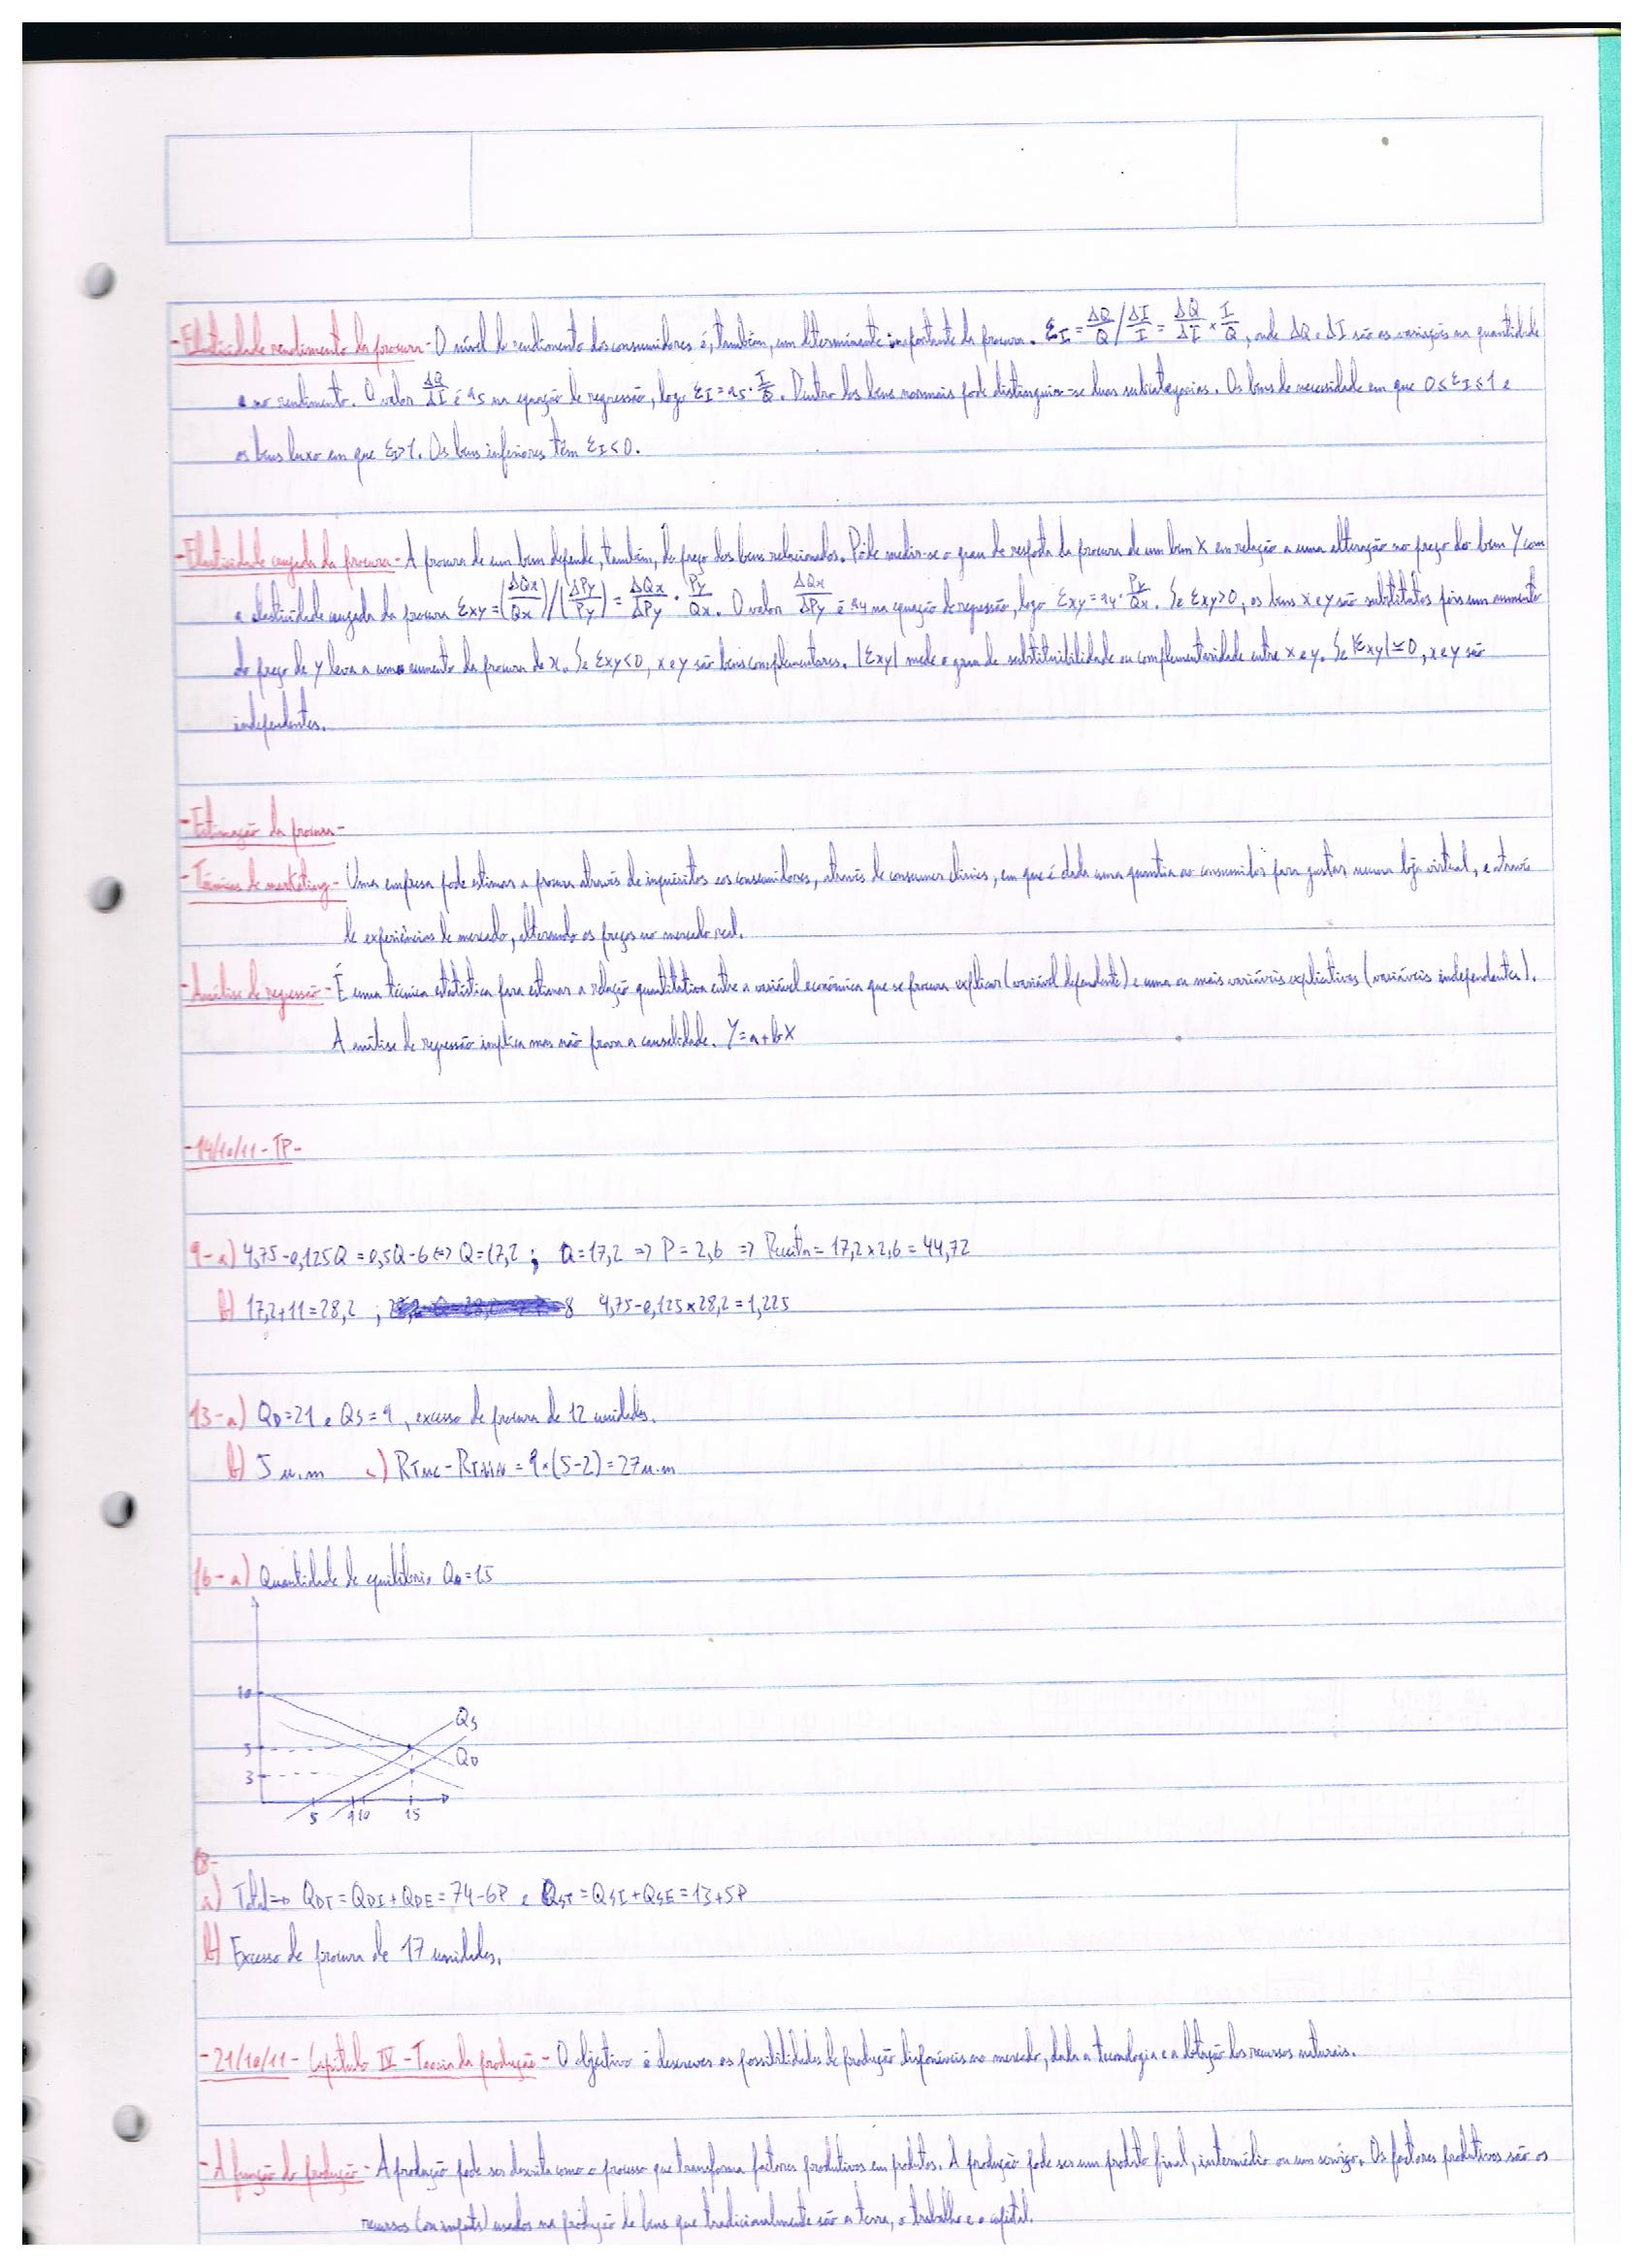 - Elasticidade rendimento da procura - O nível de rendimento dos consumidores é, também, um determinante importante da procura. ƐI = ΔQ/Q / ΔI/I = ΔQ/ΔI × I/Q, onde ΔQ e ΔI são as variações na quantidade
e no rendimento. O valor ΔQ/ΔI é a5 na equação de regressão, logo ƐI = a5 · I/Q. Dentro dos bens normais pode distinguir-se duas subcategorias. Os bens de necessidade em que 0≤ƐI≤1 e
os bens luxo em que ƐI>1. Os bens inferiores têm ƐI<0.
- Elasticidade cruzada da procura - A procura de um bem depende, também, do preço dos bens relacionados. Pode medir-se o grau de resposta da procura de um bem X em relação a uma alteração no preço do bem Y com
a elasticidade cruzada da procura Ɛxy = (ΔQx/Qx) / (ΔPy/Py) = ΔQx/ΔPy · Py/Qx. O valor ΔQx/ΔPy é a4 na equação de regressão, logo Ɛxy = a4 · Py/Qx. Se Ɛxy>0, os bens x e y são substitutos pois um aumento
do preço de y leva a um aumento da procura de x. Se Ɛxy<0, x e y são bens complementares. |Ɛxy| mede o grau de substituibilidade ou complementaridade entre x e y. Se |Ɛxy|≃0, x e y são
independentes.
- Estimação da procura -
- Técnicas de marketing - Uma empresa pode estimar a procura através de inquéritos aos consumidores, através de consumer clinics, em que é dada uma quantia ao consumidor para gastar numa loja virtual, e através
de experiências de mercado, alterando os preços no mercado real.
- Análise de regressão - É uma técnica estatística para estimar a relação quantitativa entre a variável económica que se procura explicar (variável dependente) e uma ou mais variáveis explicativas (variáveis independentes).
A análise de regressão implica mas não prova a causalidade. Y = a + bX
- 14/10/11 - TP -
9 - a) 4,75 - 0,125Q = 0,5Q - 6 <=> Q = 17,2 ; Q = 17,2 => P = 2,6 => Receita = 17,2 × 2,6 = 44,72
b) 17,2 + 11 = 28,2 ; 4,75 - 0,125 × 28,2 = 1,225
13 - a) QD = 21 e QS = 9, excesso de procura de 12 unidades.
b) 5 u.m c) RTMC - RTMIN = 9 × (5 - 2) = 27 u.m
16 - a) Quantidade de equilíbrio Q0 = 15
10
QS
5
QD
3
5 9 10 15
18 -
a) Total → QDT = QDI + QDE = 74 - 6P e QST = QSI + QSE = 13 + 5P
b) Excesso de procura de 17 unidades.
- 21/10/11 - Capítulo IV - Teoria da produção - O objectivo é descrever as possibilidades de produção disponíveis no mercado, dada a tecnologia e a dotação dos recursos naturais.
- A função de produção - A produção pode ser descrita como o processo que transforma factores produtivos em produtos. A produção pode ser um produto final, intermédio ou um serviço. Os factores produtivos são os
recursos (ou inputs) usados na produção de bens que tradicionalmente são a terra, o trabalho e o capital.